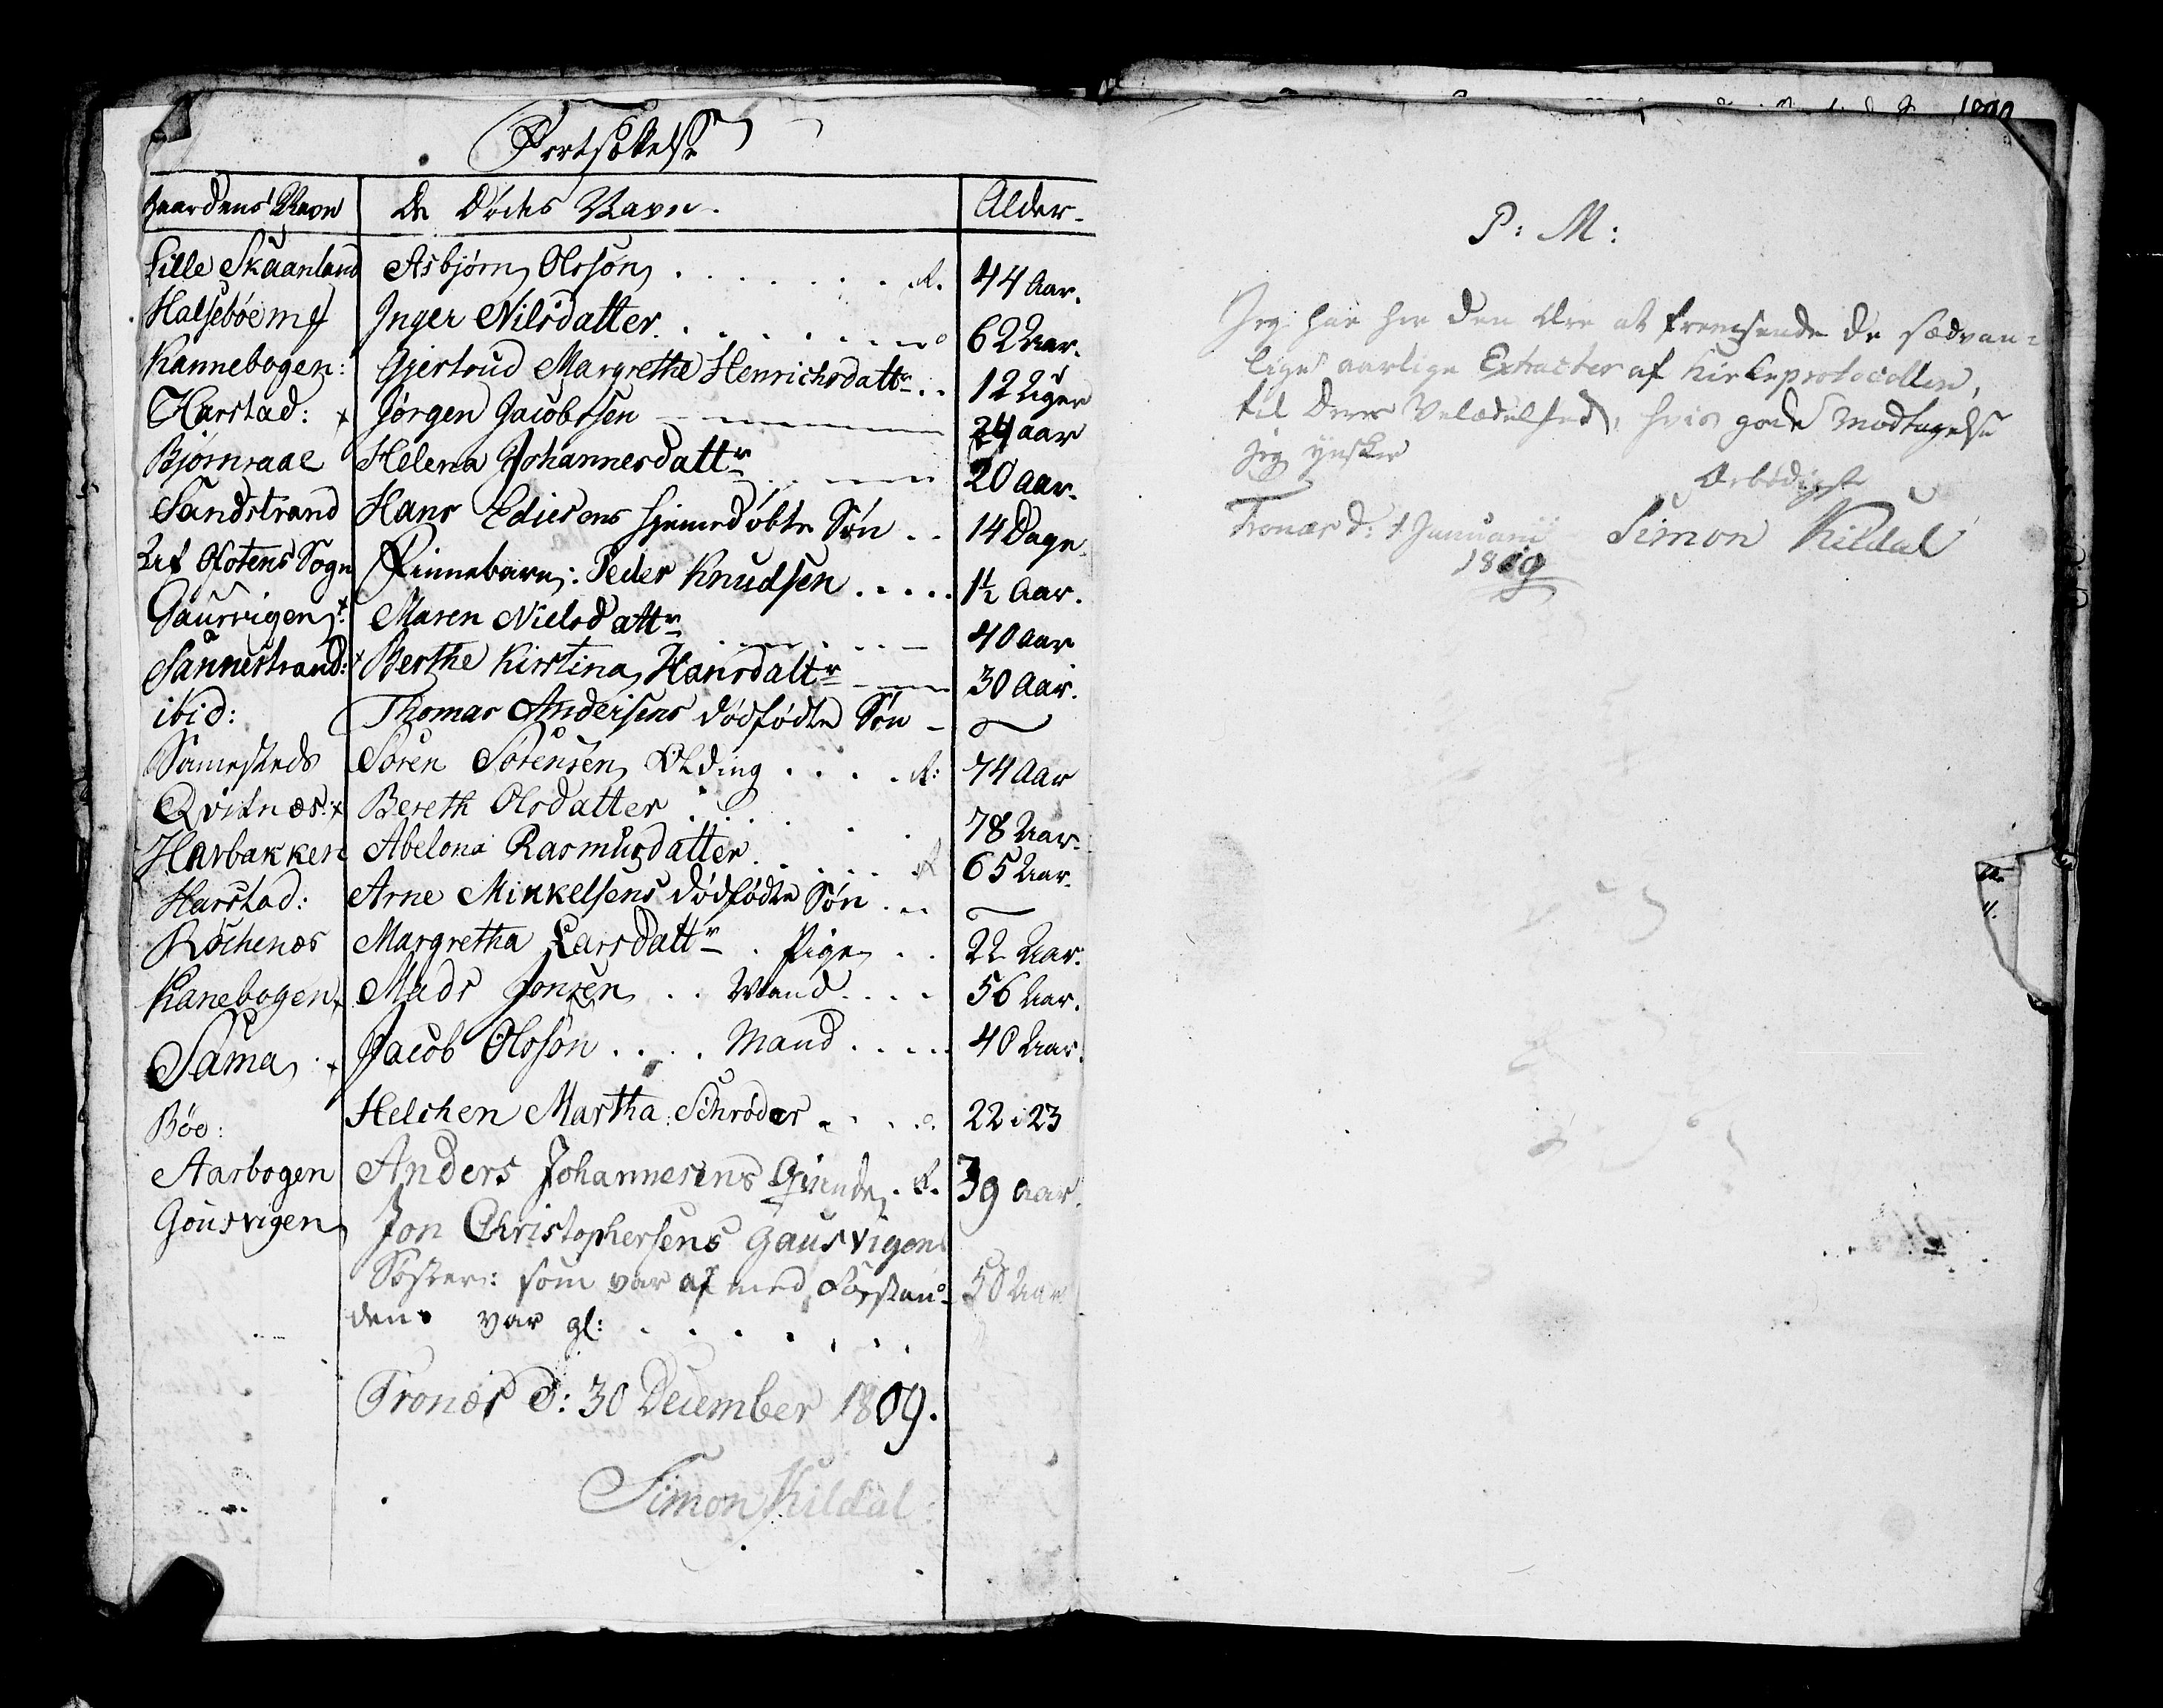 Fortsættelse
Gaardens Navn De Dødes Navn. Alder.
Lille Skaanland Asbjørn Olssøn . . . . . . . . f. 44 Aar.
Halsebøe Inger Nilsdatter . . . . . 62 Aar.
Kannebogen: Gjertrud Margrethe Henrichsdattr . . 12 Uger
Harstad: x Jørgen Jacobssen 24 aar
Bjørnraae Helena Johannesdattr 20 Aar.
Sandstrand Hans Ediesens hjemedøbte Søn . . 14 Dage
Ofotens Sogn Finnebarn: Peder Knudsen . . . . . 1½ Aar.
Gausvigen: x Maren Nielsdattr 40 Aar
Sannestrand: x Berthe Kirstina Hansdattr 30 Aar.
ibid: Thomas Andersens dødfødte Søn -
Sammesteds Søren Sørensen Olding . . . . f: 74 Aar
Qvitnæs: x Bereth Olsdatter . . . . 78 Aar.
Harbakken Abelona Rasmusdatter . . . . f 65 Aar.
Harstad: Arne Mikkelsens dødfødte Søn . . .
Røchenæs Margretha Larsdattr . Pige . . 22 Aar.
Kanebogen x Mads Jonsen . . Mand . . . . 56 Aar.
Sama x Jacob Olssøn . . . . Mand . . . . 40 Aar.
Bøe: Helchen Martha Schrøder . . . . 22 i 23
Aarbogen Anders Johannesens Qvinde . f. 39 aar.
Gousvigen Jon Christophersens Gausvigen
Søster: som var af med Forstan- 50 Aar
den. var gl: . . . . . . .
Tronæs d: 30 December 1809.
Simon Kildal
P: M:
Jeg har her den Ære at fremsende de sædvan-
lige aarlige Extracter af Kirkeprotocollen,
til Deres Velædelhed, hvis gode Modtagelse
jeg ynsker
Ærbødigst
Tronæs d: 1 Januarii Simon Kildal
1809